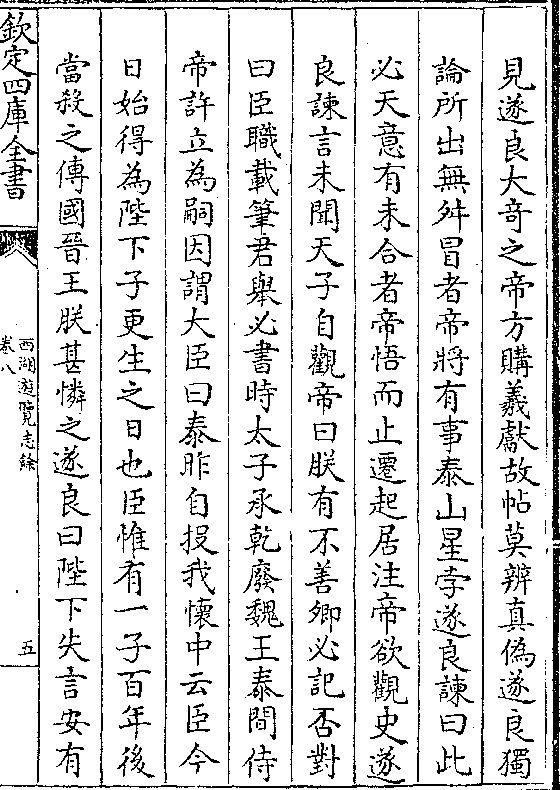 見遂良大竒之帝方購羲獻故帖莫辨真偽遂良獨
論所出無舛冒者帝將有事泰山星孛遂良諫曰此
必天意有未合者帝悟而止遷起居注帝欲觀史遂
良諫言未聞天子自觀帝曰朕有不善卿必記否對
曰臣職載筆君舉必書時太子承乾廢魏王泰間侍
帝許立為嗣因謂大臣曰泰昨自投我懷中云臣今
日始得為陛下子更生之日也臣惟有一子百年後
當殺之傳國晉王朕甚憐之遂良曰陛下失言安有
欽定四庫全書
西湖遊覽志餘
卷八
五